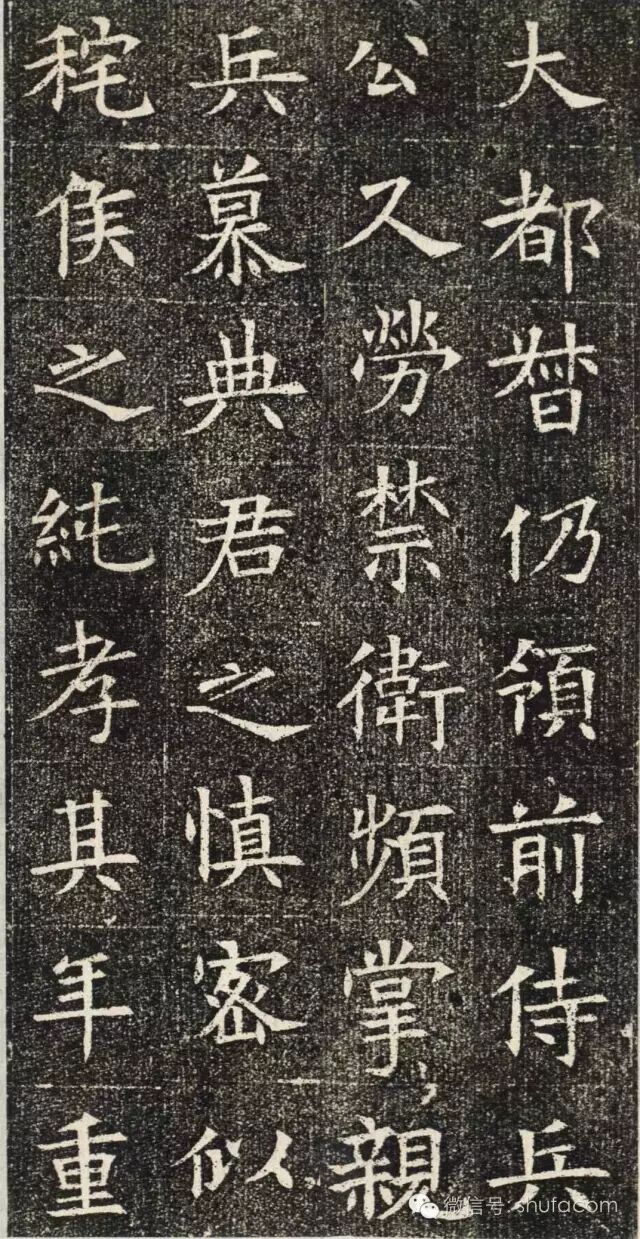 大都督仍領前侍兵
公久勞禁衛頻掌親
兵慕典君之慎密似
秺侯之純孝其年重
微信号: shufacom